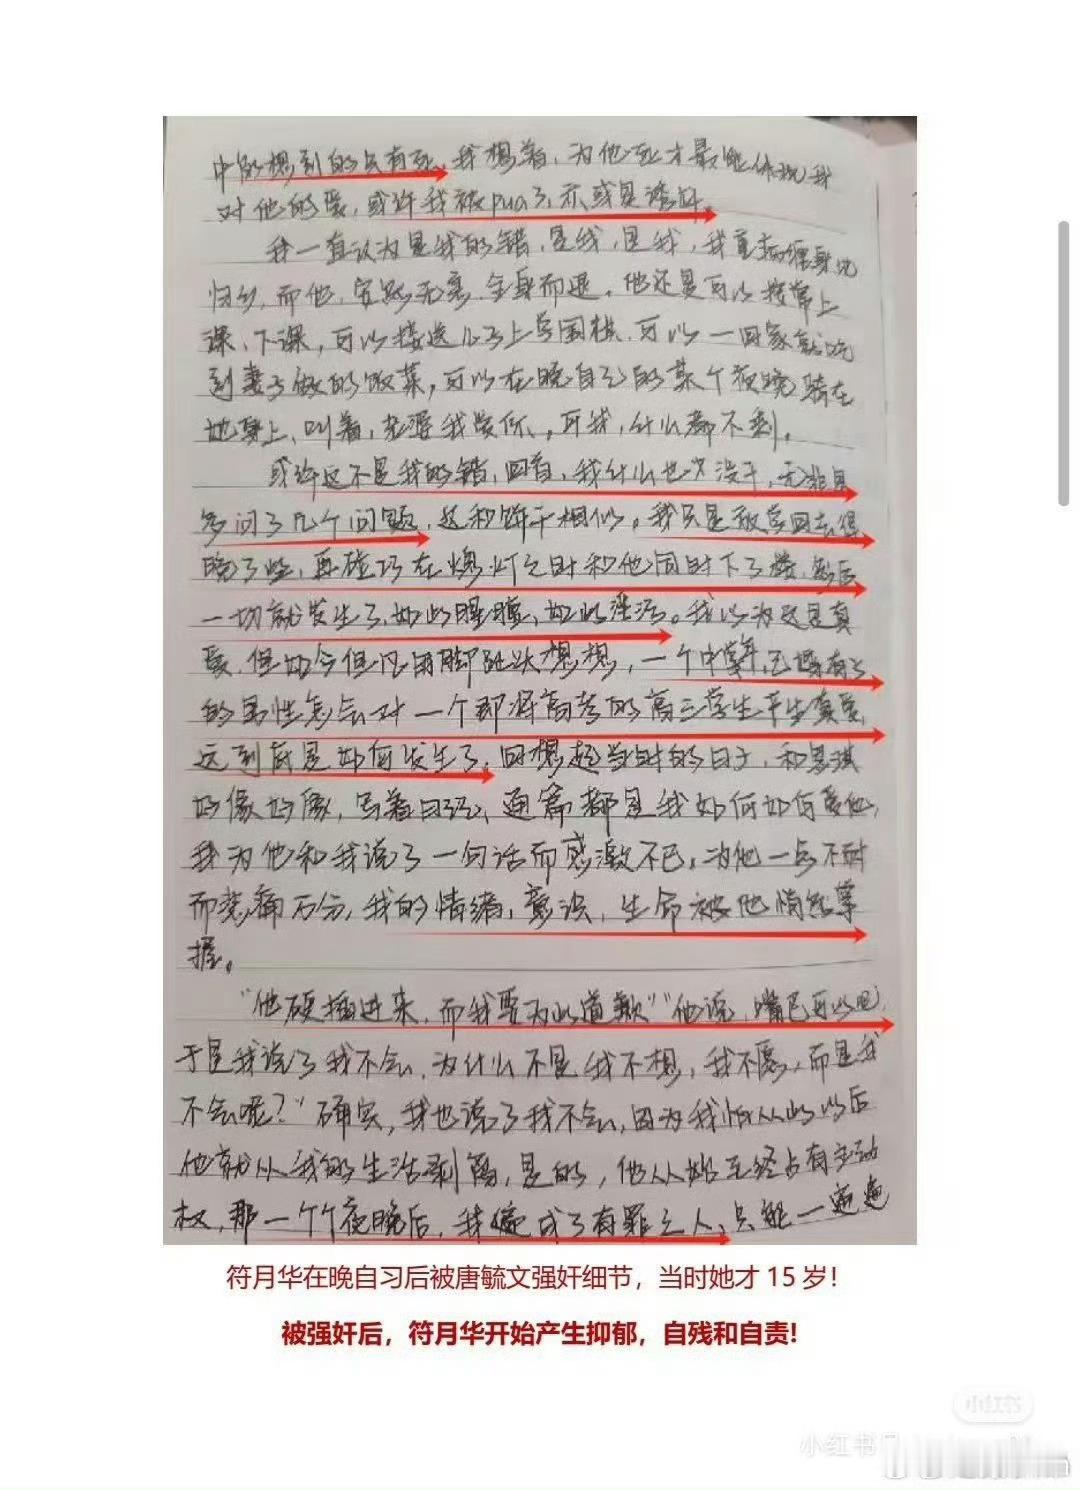 中的想到的只有死，我想着，为他死才最能体现我
对他的爱，或许我被pua了，亦或是诱奸。
我一直认为是我的错，是我，是我，我重病缠身
归乡，而他，毫无，全身而退，他还是可以接常上
课、下课，可以接送儿子上学围棋，可以一回家就吃
到妻子做的饭菜，可以在晚自习的某个夜晚骑在
她身上，叫着，老婆我爱你，可我，什么都不剩。
或许这不是我的错，回首，我什么也没干，无非是
多问了几个问题，这和饼干相似。我只是放学回去得
晚了些，再碰巧在熄灯之时和他同时下了楼，然后
一切就发生了，如此，如此。我以为这是真
爱，但如今但凡用脚趾头想想，一个中年，已婚有子
的男性怎么会对一个即将高考的高三学生产生真爱，
这到底是如何发生了，回想起当时的日子，和思琪
好像好像，写着日记，通篇都是我如何如何爱他，
我为他和我说了一句话而感激不已，为他一点不耐
而悲痛万分，我的情绪，意识，生命被他悄然掌
握。
“他硬插进来，而我要为此道歉”“他说，嘴巴可以吧，
于是我说了我不会，为什么不是我不想，我不愿，而是我
不会呢？”确实，我也说了我不会，因为我怕从此以后
他就从我的生活剥离，是的，他从始至终占有主动
权，那一个个夜晚后，我变成了有罪之人，只能一遍遍
符月华在晚自习后被唐毓文强奸细节，当时她才 15 岁！
被强奸后，符月华开始产生抑郁，自残和自责！
小红书
小红书